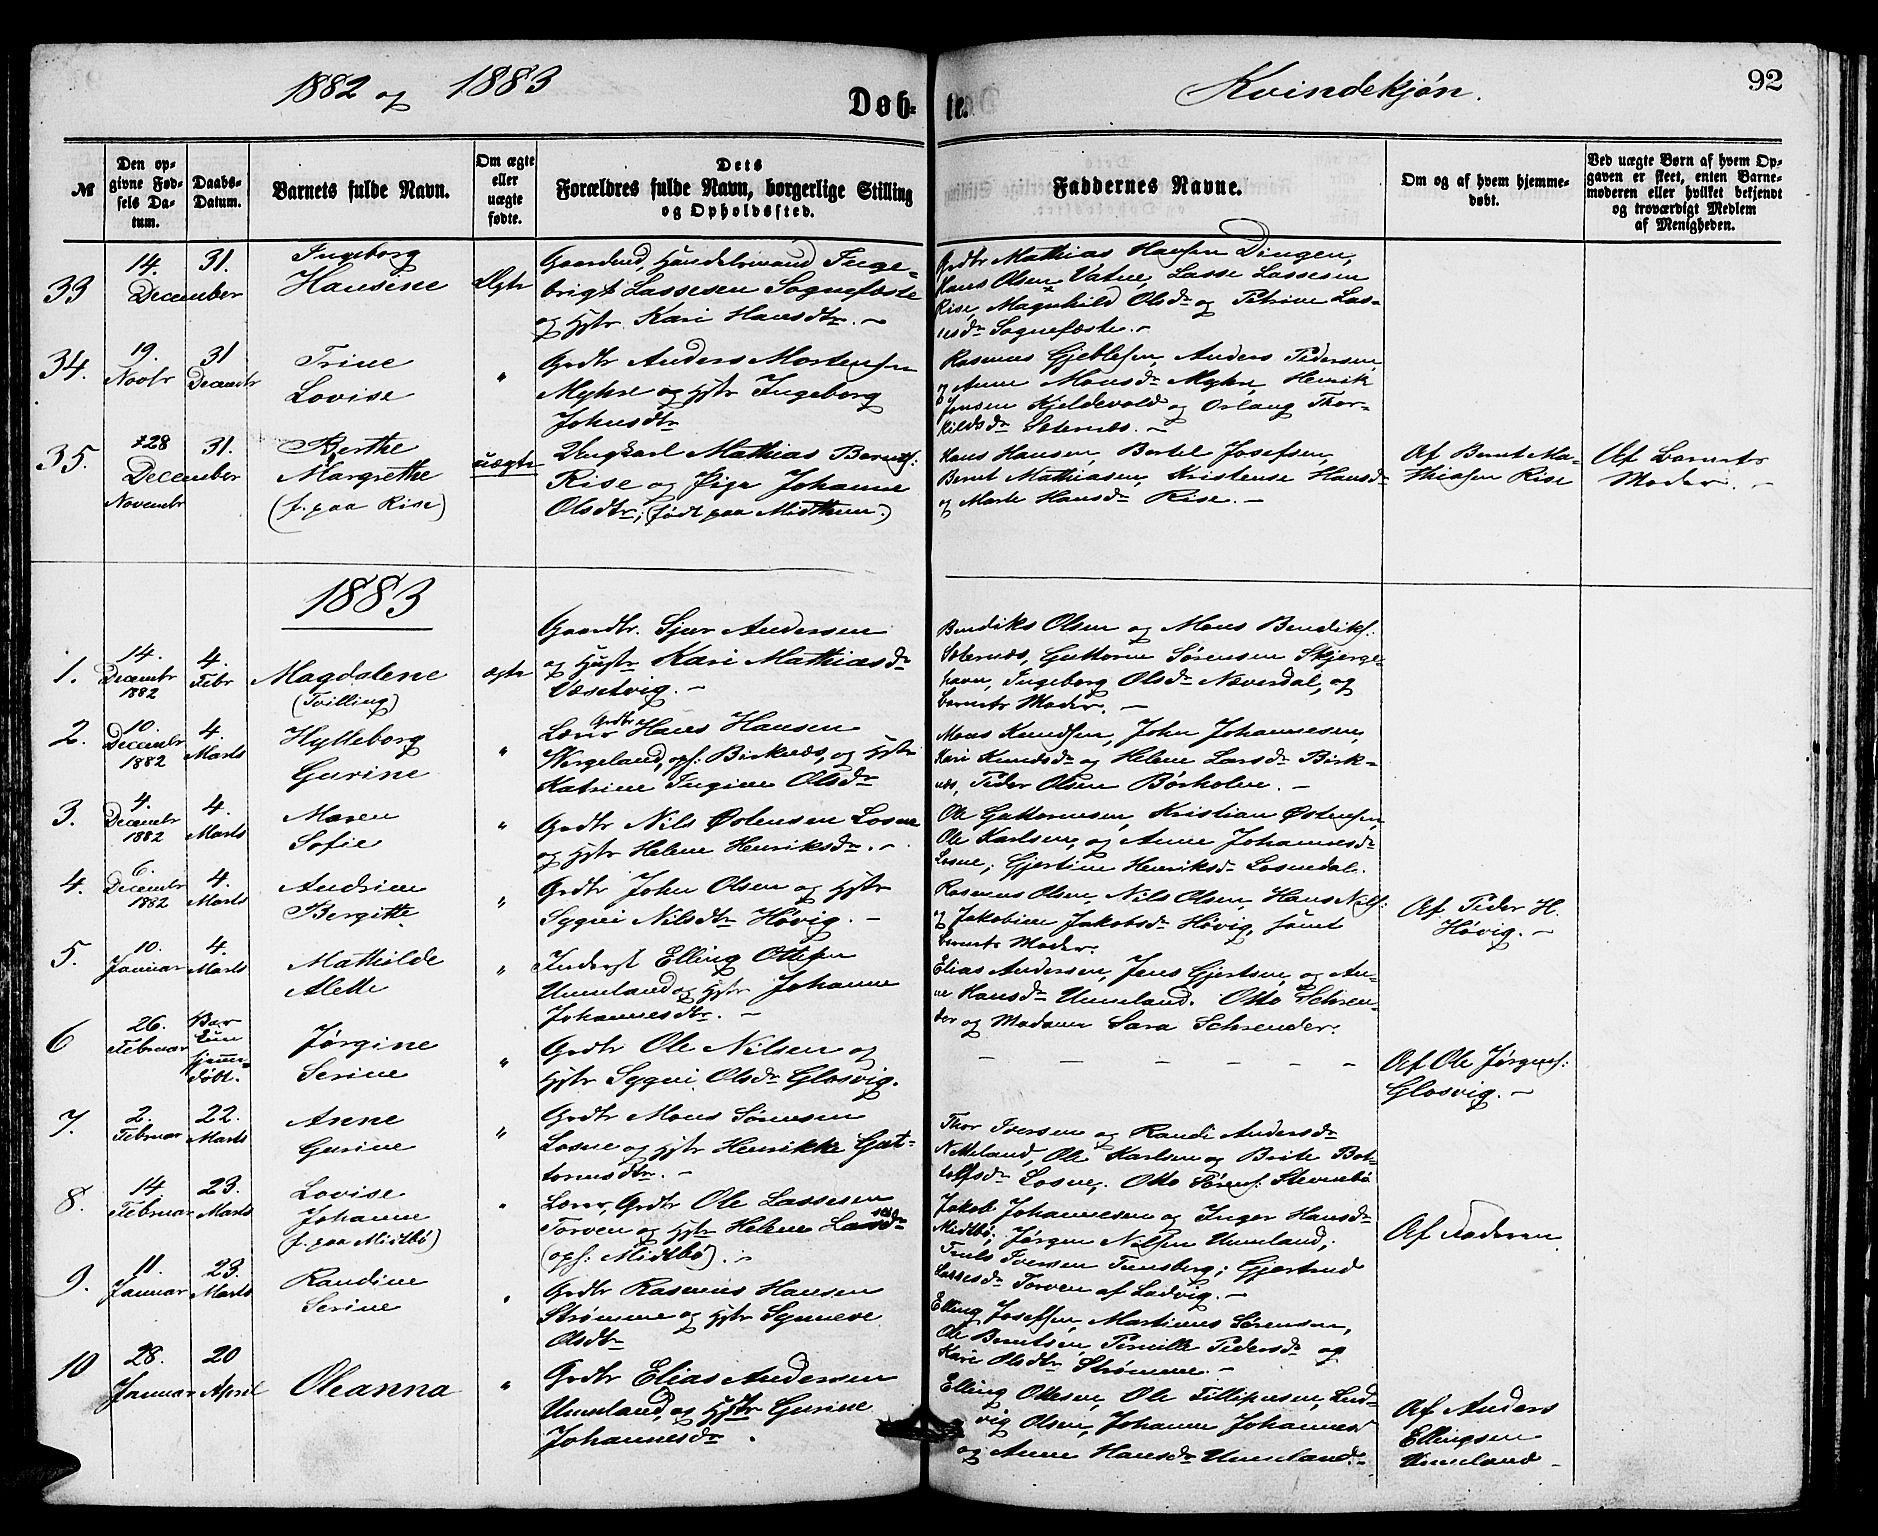 1882 og 1883
Døb-
te.
Kvindekjøn.
92
№
Den op-
givne Fød-
sels Da-
tum.
Daabs-
Datum.
Barnets fulde Navn.
Om ægte
eller
uægte
fødte.
Dets
Forældres fulde Navn, borgerlige Stilling
og Opholdssted.
Faddernes Navne.
Om og af hvem hjemme-
døbt.
Ved uægte Børn af hvem Op-
gaven er skeet, enten Barne-
moderen eller hvilket bekjendt
og troværdigt Medlem
af Menigheden.
33
14.
December
31.
Ingeborg
Hansine
Ægte
Gaardmd, Handelsmand Inge-
brigt Lassesen Sognefæste
og Hstr Kari Hansdtr. -
Grdbr Mathias Hansen Dingen,
Hans Olsen Vatne, Lasse Lassesen
Rise, Magnhild Olsdr og Petrine Las-
sesdr Sognefæste. -
34.
19.
Novbr
31
Decembr
Trine
Lovise
"
Grdbr Anders Mortensen
Myhre og Hstr Ingeborg
Johnsdtr
Rasmus Gjeblesen, Anders Pedersen,
og Anne Monsdr Myhre, Henrik
Jensen Kjeldevold og Orlaug Thor-
kildsdr Seternæs. -
35.
28
December
Novembr
31.
Berthe
Margrethe
(f. paa Rise)
uægte
Ungkarl Mathias Bernts:
Rise og Pige Johanne
Olsdtr, (født paa Midttun.)
Hans Hansen, Bertel Josefsen,
Bernt Mathiasen, Kristense Hansdr
og Marte Hansdr Rise. -
Af Bernt Ma-
thiasen Rise
Af Barnets
Moder. -
1883
1.
14.
Decembr
1882
4.
Febr
Magdalene
(Tvilling)
ægte
Gaardbr. Sjur Andersen
og Hustr Kari Mathiasdr
Væsetvig. -
Bendiks Olsen og Mons Bendiks:
Seternæs, Guttorm Sørensen Skjerge-
havn, Ingeborg Olsdr Næverdal, og
Barnets Moder. -
2.
10.
Decembr
1882
4.
Marts
Hylleborg
Gurine
"
Grdbr
Lærer Hans Hansen
Wergeland, opf: Birknæs, og Hstr
Katrine Ingine Olsdr
Mons Knudsen, John Johannesen,
Kari Knudsdr og Helene Larsdr Birk-
næs, Peder Olsen Børholm. -
3.
4.
Decembr
1882
4.
Marts
Maren
Sofie
"
Grdbr Nils Østensen Losne
og Hstr Helene Henriksdr. -
Ole Guttormsen, Kristian Østensen,
Ole Karlsen, og Anne Johannesdr
Losne; Gjertine Henriksdr Losnedal.
4.
6.
Decembr
1882
4.
Marts
Andrine
Bergitte
"
Grdbr John Olsen og Hstr
Sygni Nilsdtr Høvig. -
Rasmus Olsen, Nils Olsen, Hans Nils:
og Jakobine Jakobsdr Høvig, samt
Barnets Moder.
Af Peder H.
Høvig. -
5.
10.
Januar
4.
Marts
Mathilde
Alette
"
Inderst Elling Ottesen
Unneland og Hstr Johanne
Johannesdtr. -
Elias Andersen, Jens Gjertsen, og An-
ne Hansdr Unneland. Otto Schreu-
der og Madame Sara Schreuder.
6
26.
Februar
Bar
kun
hjemme-
døbt.
Jørgine
Serine
"
Grdbr Ole Nilsen og
Hstr Sygni Olsdr Glosvig.
- - - - - -
Af Ole Jørgens:
Glosvig. -
7.
2.
Februar
22.
Marts
Anne
Gurine
"
Grdbr Mons Sørensen
Losne og Hstr Henrikke Gut-
tormsdtr. -
Thor Iversen og Randi Andersdr
Netteland, Ole Karlsen og Brite Bot-
tolfsdr Losne, Otto Sørens: Stevnebø
8.
14
Februar
23.
Marts
Lovise
Johanne
(f. paa Midtbø)
"
Lærer, Grdbr Ole Lassesen
Torven og Hstr Helene Lassdr
(opf: Midtbø). -
Jakob Johannesen og Inger Hansdr
Midtbø, Jørgen Nilsen Unneland,
Truls Iversen Tunsberg; Gjertrud
Lassesdr Torven af Ladvig. -
Af Faderen
9.
11.
Januar
23.
Marts
Randine
Serine
"
Grdbr Rasmus Hansen
Strømme og Hstr Synneve
Olsdtr
Elling Josefsen, Martinus Sørensen,
Ole Berntsen, Pernille Pedersdr og
Kari Olsdtr Strømme. -
10
28.
Januar
20
April
Oleanna
"
Grdbr Elias Andersen
Unneland, og Hstr Gurine
Johannesdr.
Elling Ottesen, Ole Fillipusen, Lud-
vig Olsen, Johanne Johannesd
og Anne Hansdr Unneland. -
Af Anders
Ellingsen
Unneland -